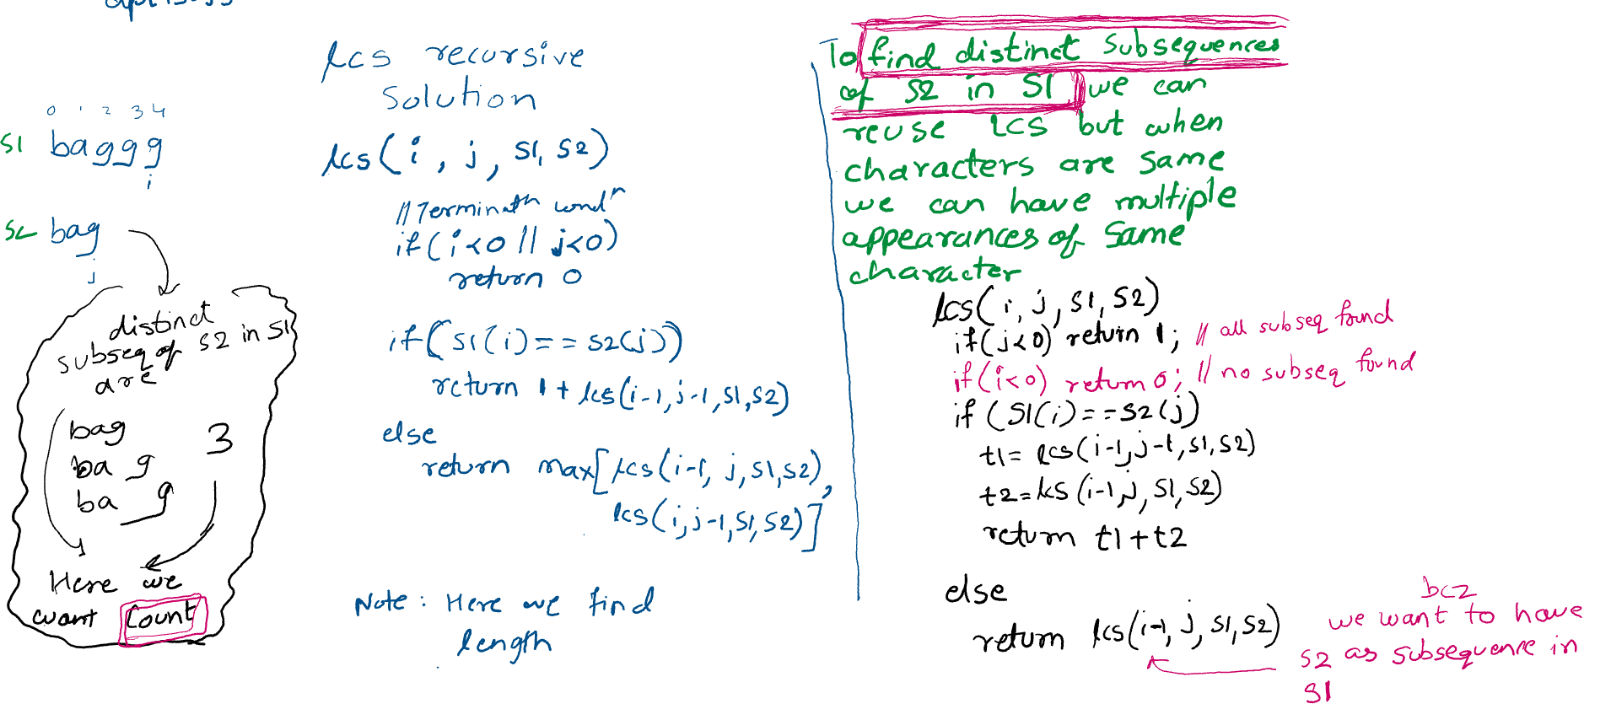 0 1 2 3 4
S1 baggg
i
S2 bag
j
distinct
subseq of S2 in S1
are
bag
ba g
ba g
3
Here we
want Count
lcs recursive
Solution
lcs(i, j, S1, S2)
if(i<0 || j<0)
return 0
if(S1(i)==S2(j))
return 1+lcs(i-1,j-1,S1,S2)
else
return max[lcs(i-1, j,S1,S2),
lcs(i,j-1,S1,S2)]
Note: Here we find
length
To find distinct Subsequences
of S2 in S1 we can
reuse LCS but when
characters are same
we can have multiple
appearances of Same
character
lcs(i, j, S1, S2)
if(j<0) return 1; // all subseq found
if(i<0) return 0; // no subseq found
if (S1(i)==S2(j)
t1= lcs(i-1,j-1,S1,S2)
t2=lcs(i-1,j,S1,S2)
return t1+t2
else
return lcs(i-1, j, S1, S2)
bcz
we want to have
S2 as subsequence in
S1